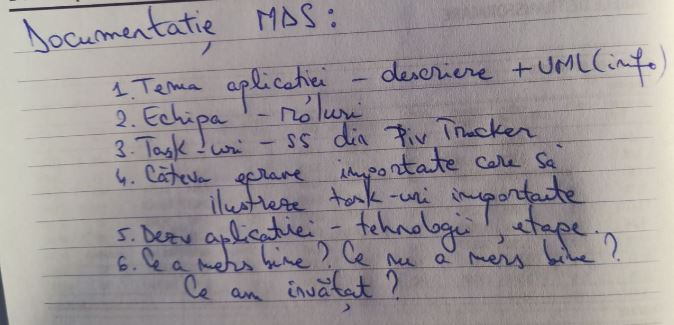 Documentație MDS:
1. Tema aplicației - descriere + UML (info)
2. Echipa - roluri
3. Task-uri - ss din Piv Tracker
4. Câteva ecrane importante care să
ilustreze task-uri importante
5. Dezv aplicației - tehnologii, etape.
6. Ce a mers bine? Ce nu a mers bine?
Ce am învățat?